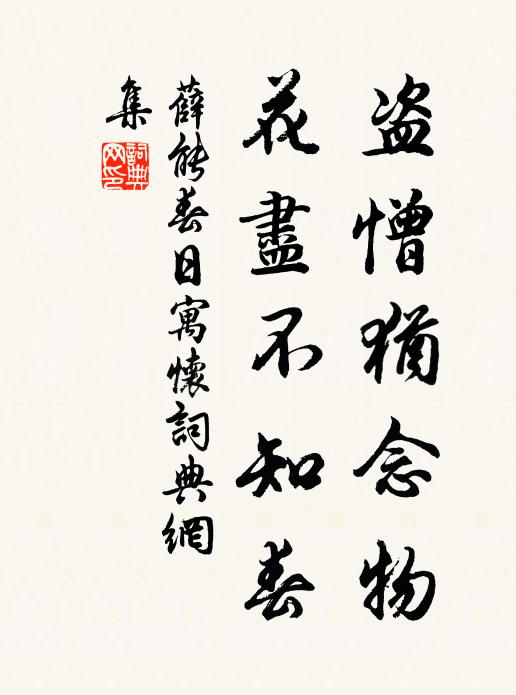 盗憎猶念物
花盡不知春
薛能春日寓懷詞典網
集
詞典网印